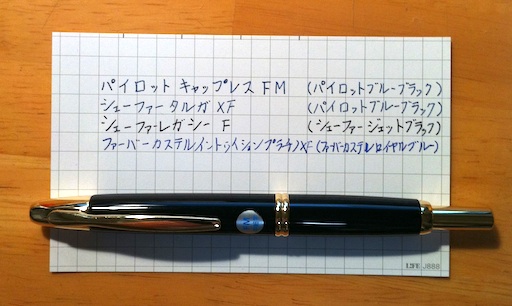 パイロット キャップレス FM (パイロットブルーブラック)
シェーファータルガ XF (パイロットブルーブラック)
シェーファーレガシー F (シェーファージェットブラック)
ファーバーカステルイントゥイションプラチノXF (ファーバーカステルロイヤルブルー)
LIFE J888